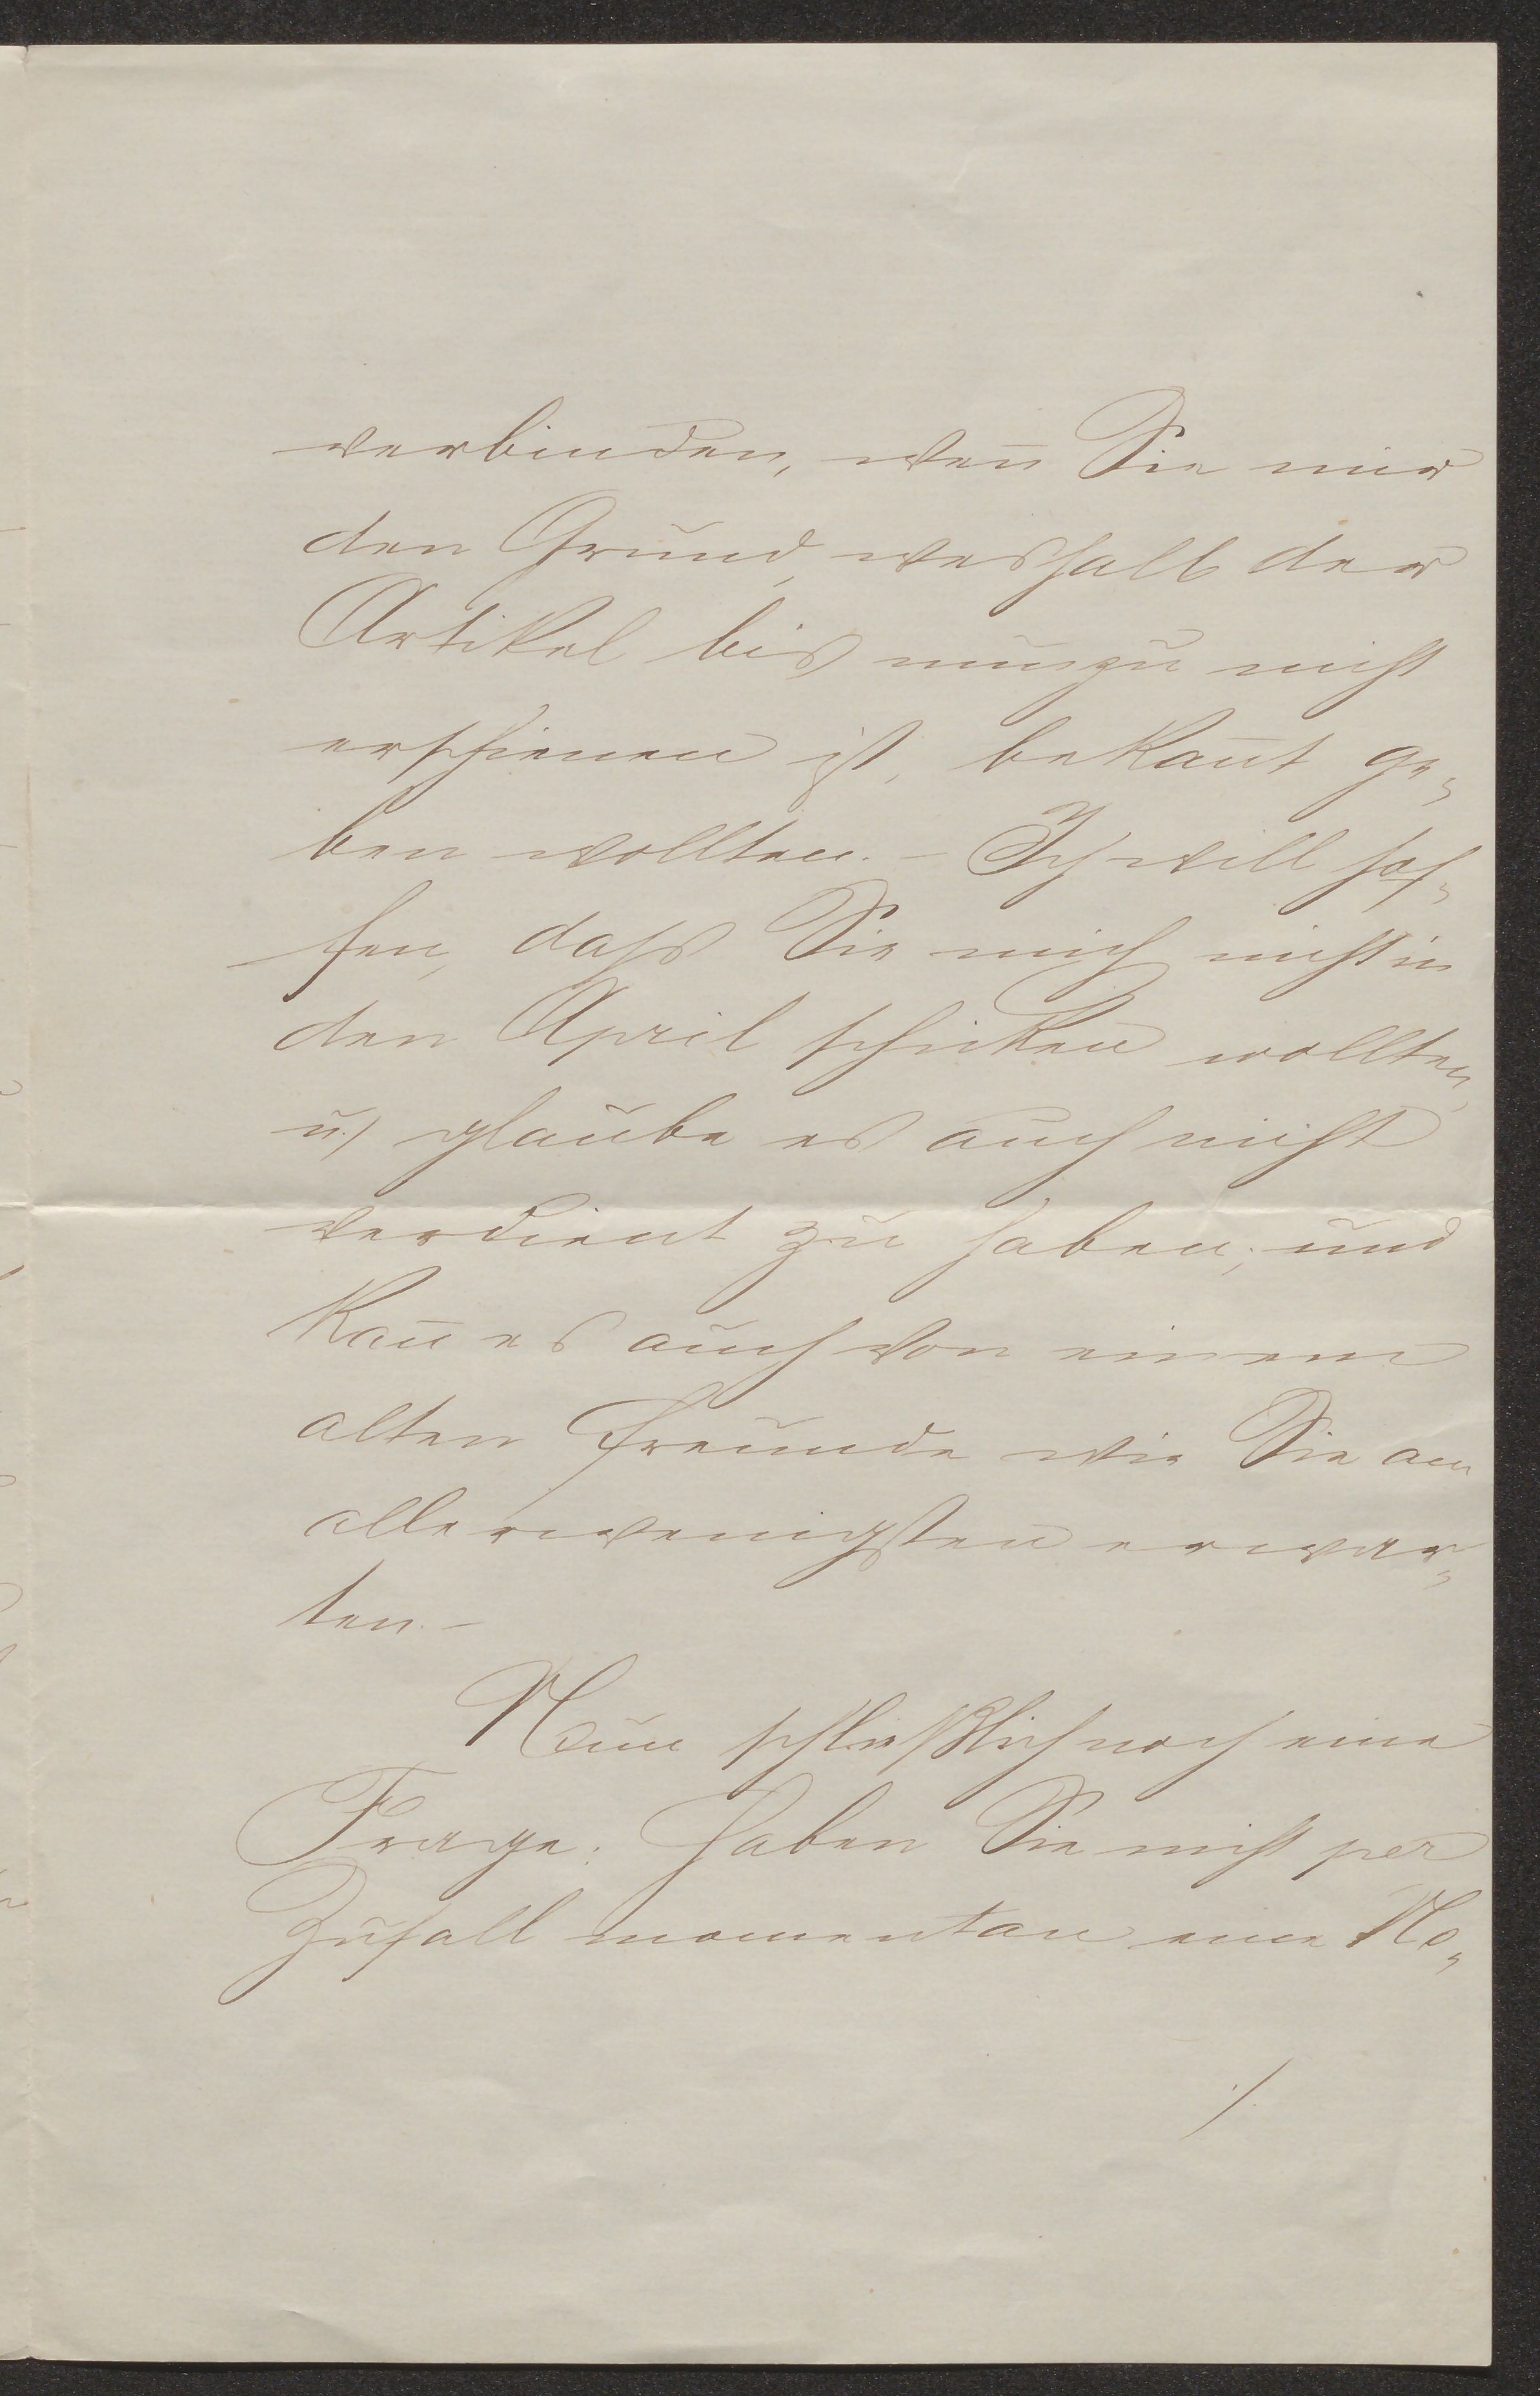 verbinden, weñ Sie mir
den Grund, weshalb der
Artikel bis nunzu nicht
erschienen ist, bekañt ge„
ben wollten. – Ich will hof„
fen, dass Sie mich nicht in
den April schicken wollten,
u./ glaube es auch nicht
verdient zu haben; und
kañ es auch von einem
alten Freunde wie Sie am
allerwenigsten erwar„
ten. –
Nun schließlich noch eine
Frage: Haben Sie nicht per
Zufall momentan eine No„
./.